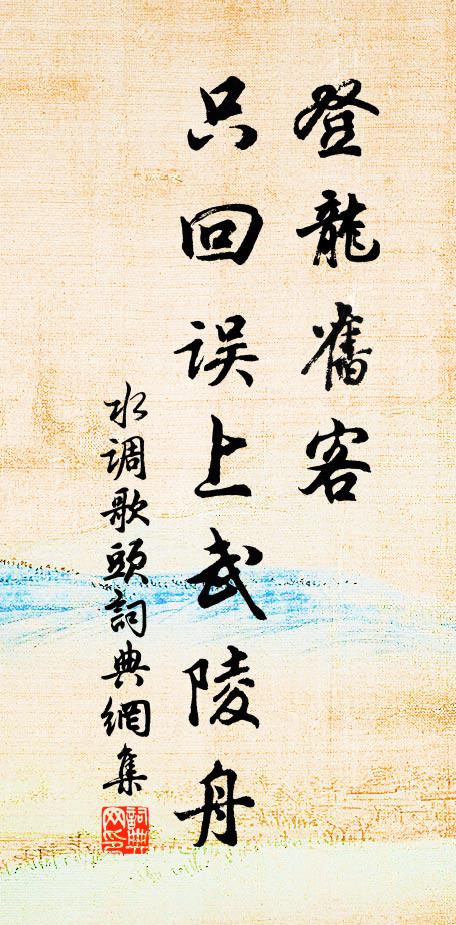 登龍舊客
只回误上武陵舟
水调歌頭詞典網集
詞典網印